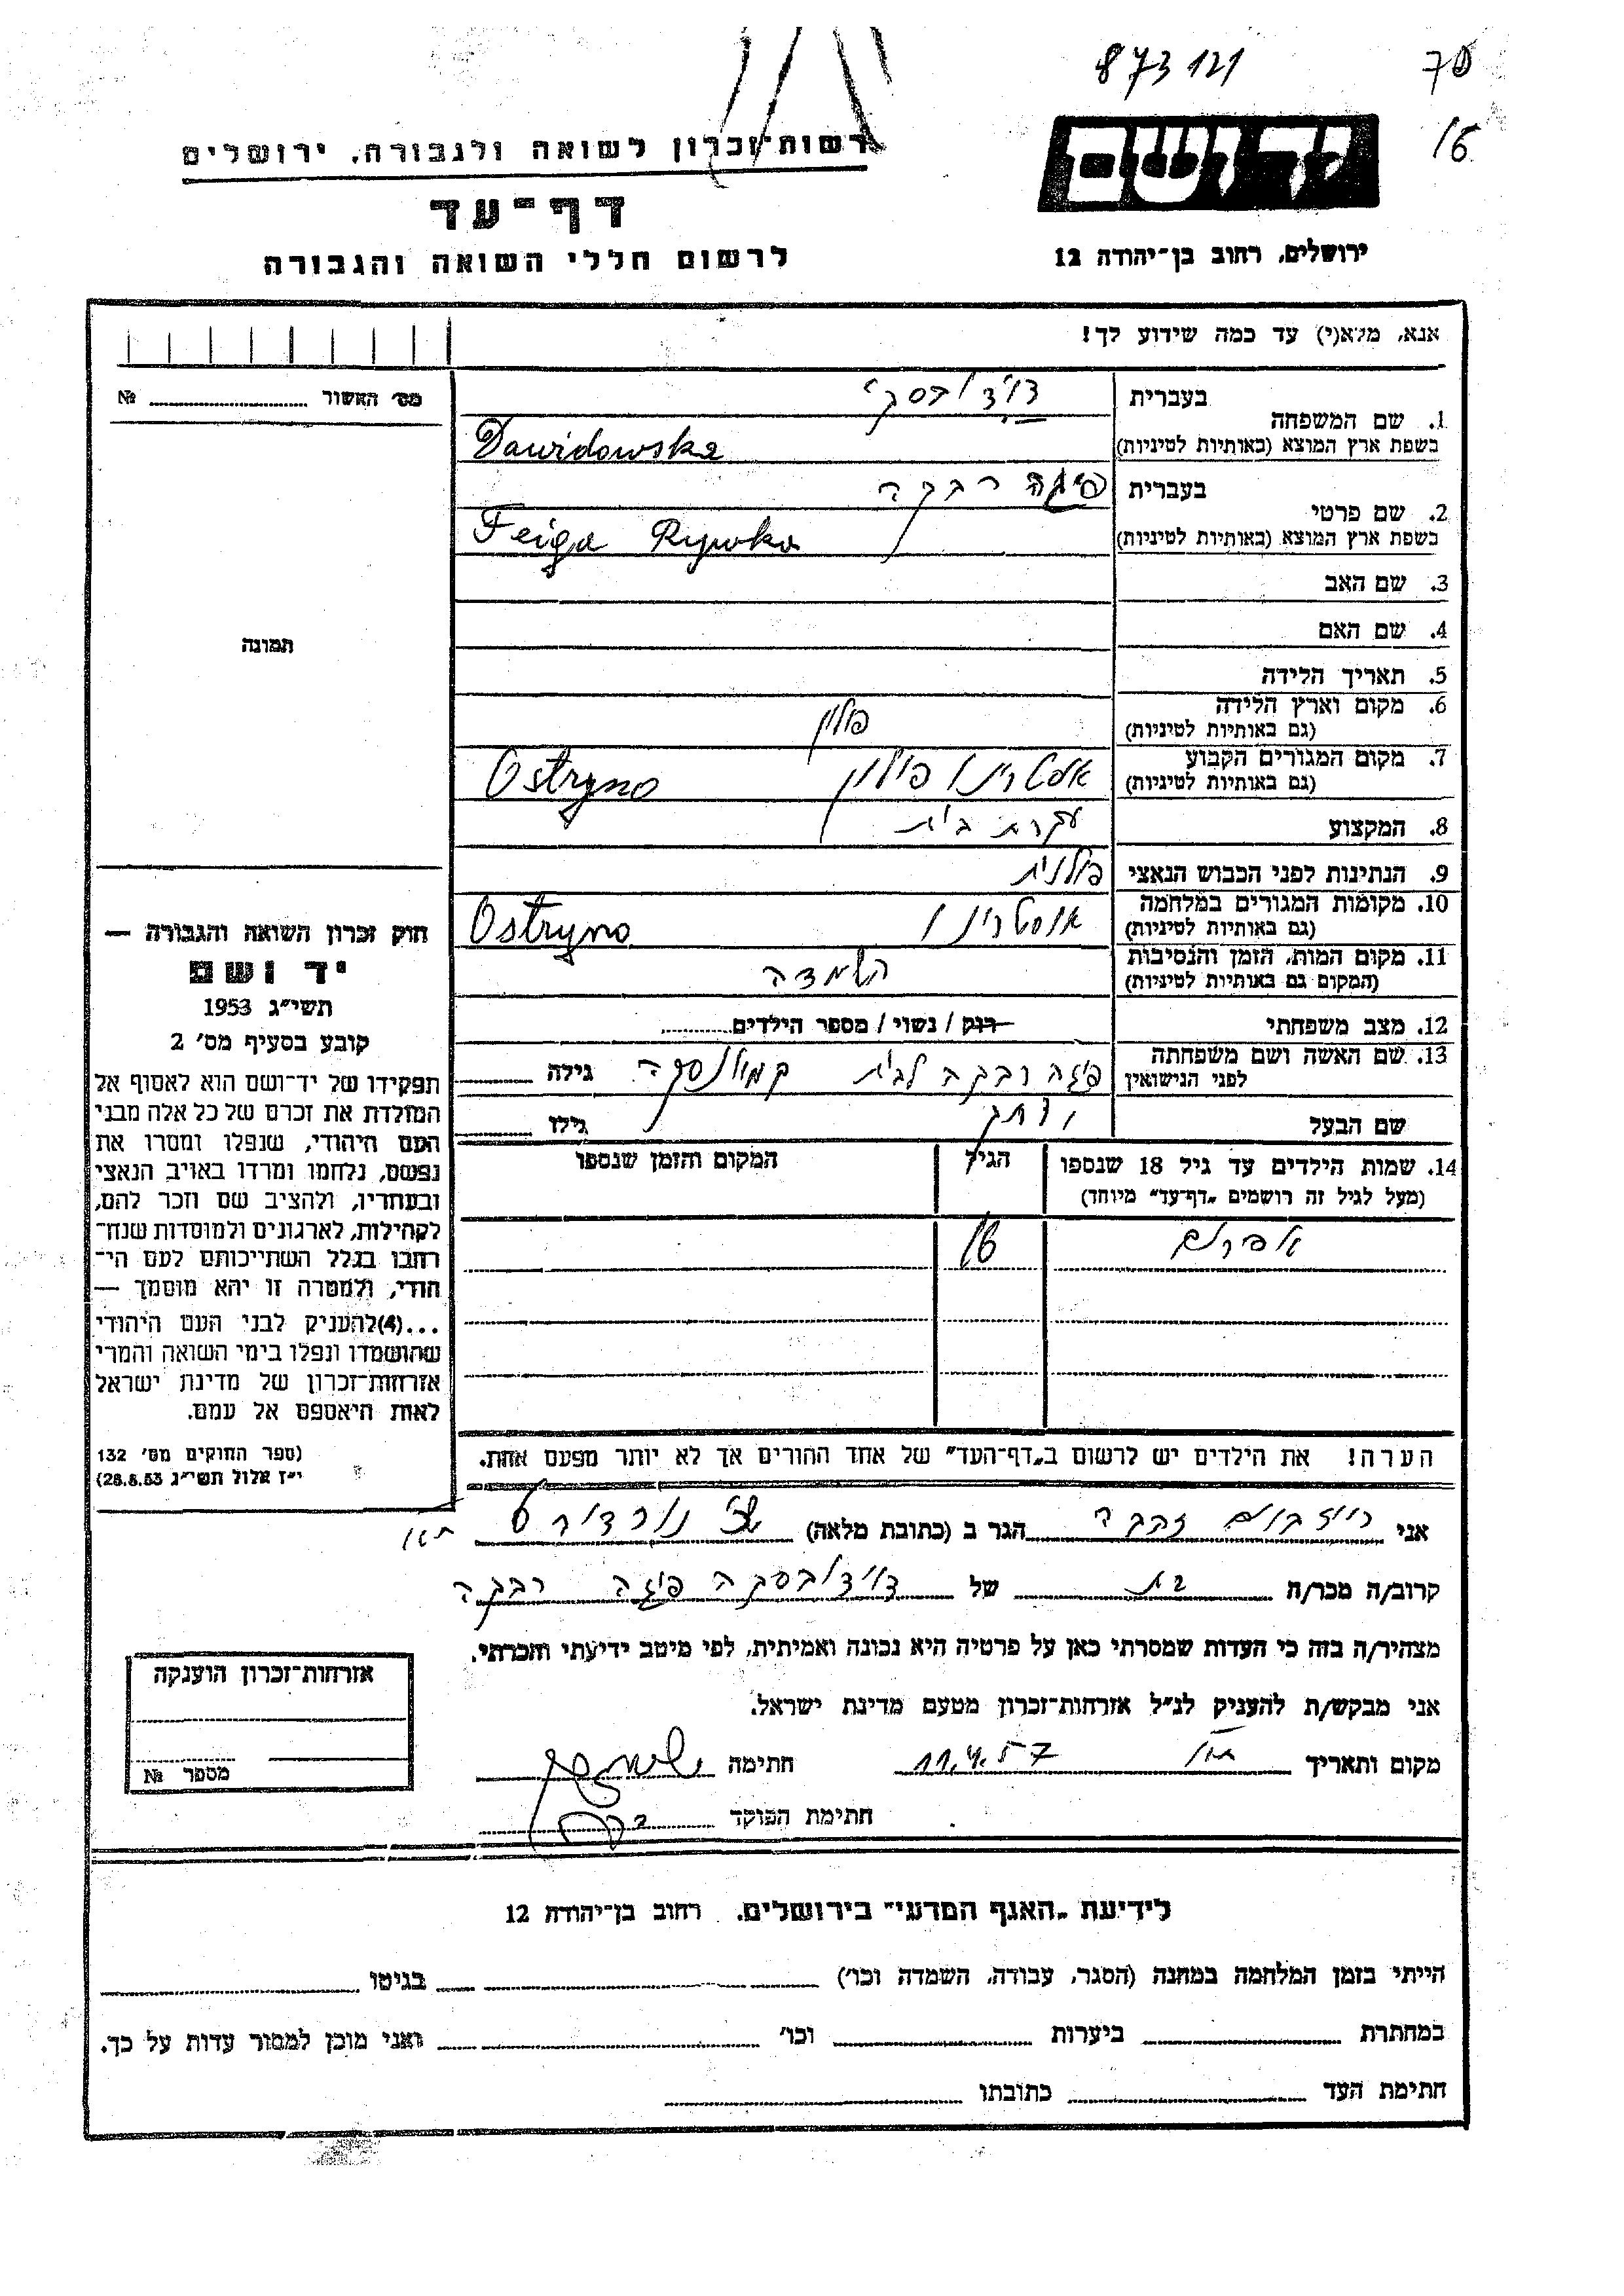 873121
70
16
יד ושם
רשות־זכרון לשואה ולגבורה, ירושלים
דף־עד
ירושלים, רחוב בן־יהודה 12
לרשום חללי השואה והגבורה
אנא, מלא(י) עד כמה שידוע לך!
מס׳ האשור № 
1. שם המשפחה
בעברית
בשפת ארץ המוצא (באותיות לטיניות) Dawidowska
2. שם פרטי
בעברית פיגה רבקה
בשפת ארץ המוצא (באותיות לטיניות) Feiga Rywka
3. שם האב
4. שם האם
תמונה
5. תאריך הלידה
6. מקום וארץ הלידה פולין
(גם באותיות לטיניות)
7. מקום המגורים הקבוע אוסטרינו פולין Ostryno
(גם באותיות לטיניות)
8. המקצוע עקרת בית
9. הנתינות לפני הכבוש הנאצי פולנית
10. מקומות המגורים במלחמה אוסטרינו Ostryno
(גם באותיות לטיניות)
11. מקום המות, הזמן והנסיבות השמדה
(המקום גם באותיות לטיניות)
12. מצב משפחתי רוק / נשוי / מספר הילדים
13. שם האשה ושם משפחתה פיגה רבקה לבית גילה
לפני הנישואין
שם הבעל גילו
14. שמות הילדים עד גיל 18 שנספו הגיל המקום והזמן שנספו
(מעל לגיל זה רושמים „דף־עד״ מיוחד)
אפרים 16
הערה! את הילדים יש לרשום ב„דף־העד״ של אחד ההורים אך לא יותר מפעם אחת.
חוק זכרון השואה והגבורה —
יד ושם
תשי״ג 1953
קובע בסעיף מס׳ 2
תפקידו של יד־ושם הוא לאסוף אל
המולדת את זכרם של כל אלה מבני
העם היהודי, שנפלו ומסרו את
נפשם, נלחמו ומרדו באויב הנאצי
ובעוזריו, ולהציב שם וזכר להם,
לקהילות, לארגונים ולמוסדות שנח־
רבו בגלל השתייכותם לעם הי־
הודי, ולמטרה זו יהא מוסמך —
...(4)להעניק לבני העם היהודי
שהושמדו ונפלו בימי השואה והמרי
אזרחות־זכרון של מדינת ישראל
לאות היאספם אל עמם.
(ספר החוקים מס׳ 132
י״ז אלול תשי״ג 28.8.53)
אני הגר ב (כתובת מלאה)
קרוב/ה מכר/ה בת של דוידובסקה פיגה רבקה
מצהיר/ה בזה כי העדות שמסרתי כאן על פרטיה היא נכונה ואמיתית, לפי מיטב ידיעתי והכרתי.
אני מבקש/ת להעניק לנ״ל אזרחות־זכרון מטעם מדינת ישראל.
מקום ותאריך 11.4.57 חתימה
חתימת הפוקד
אזרחות־זכרון הוענקה
מספר №
לידיעת „האגף המדעי״ בירושלים. רחוב בן־יהודה 12
הייתי בזמן המלחמה במחנה (הסגר, עבודה, השמדה וכו׳) בגיטו
במחתרת ביערות וכו׳ ואני מוכן למסור עדות על כך.
חתימת העד כתובתו